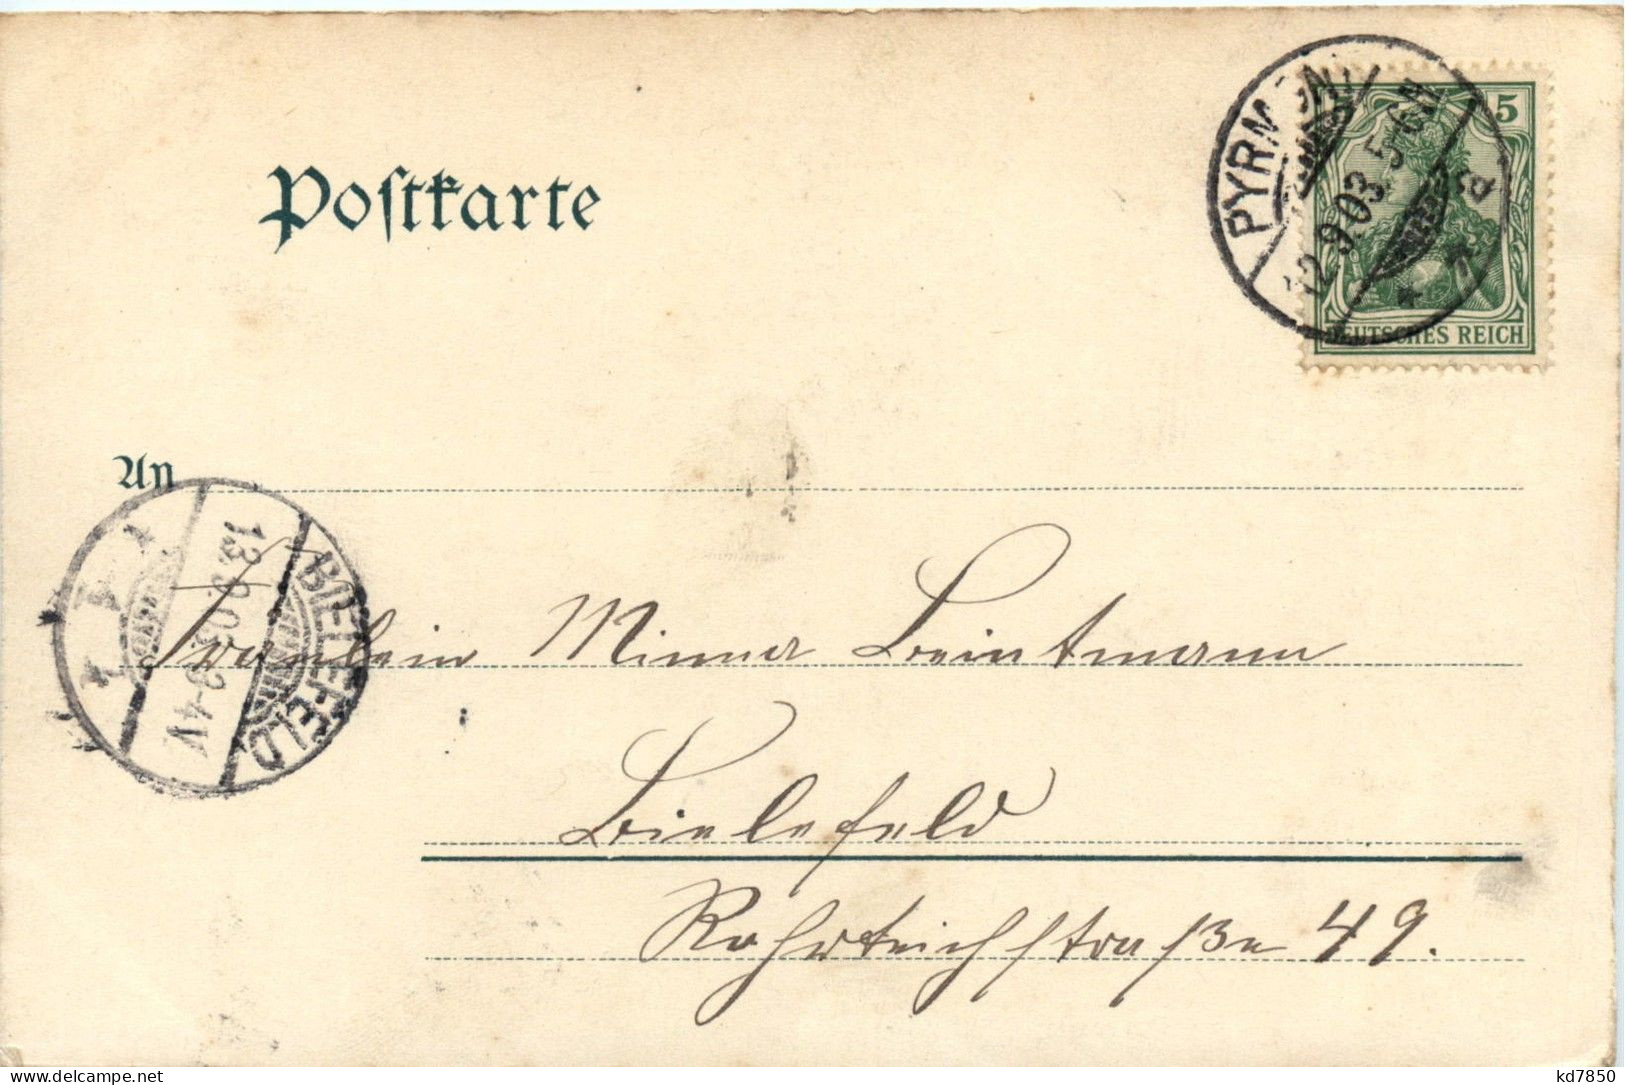 Postkarte
PYRMONT
12.9.03. 5-6N
5
DEUTSCHES REICH
An
BIELEFELD
13.9.03. 3-4V
Fräulein Minna Beintmann
Bielefeld
Rohrteichstraße 49.
www.delcampe.net
kd7850